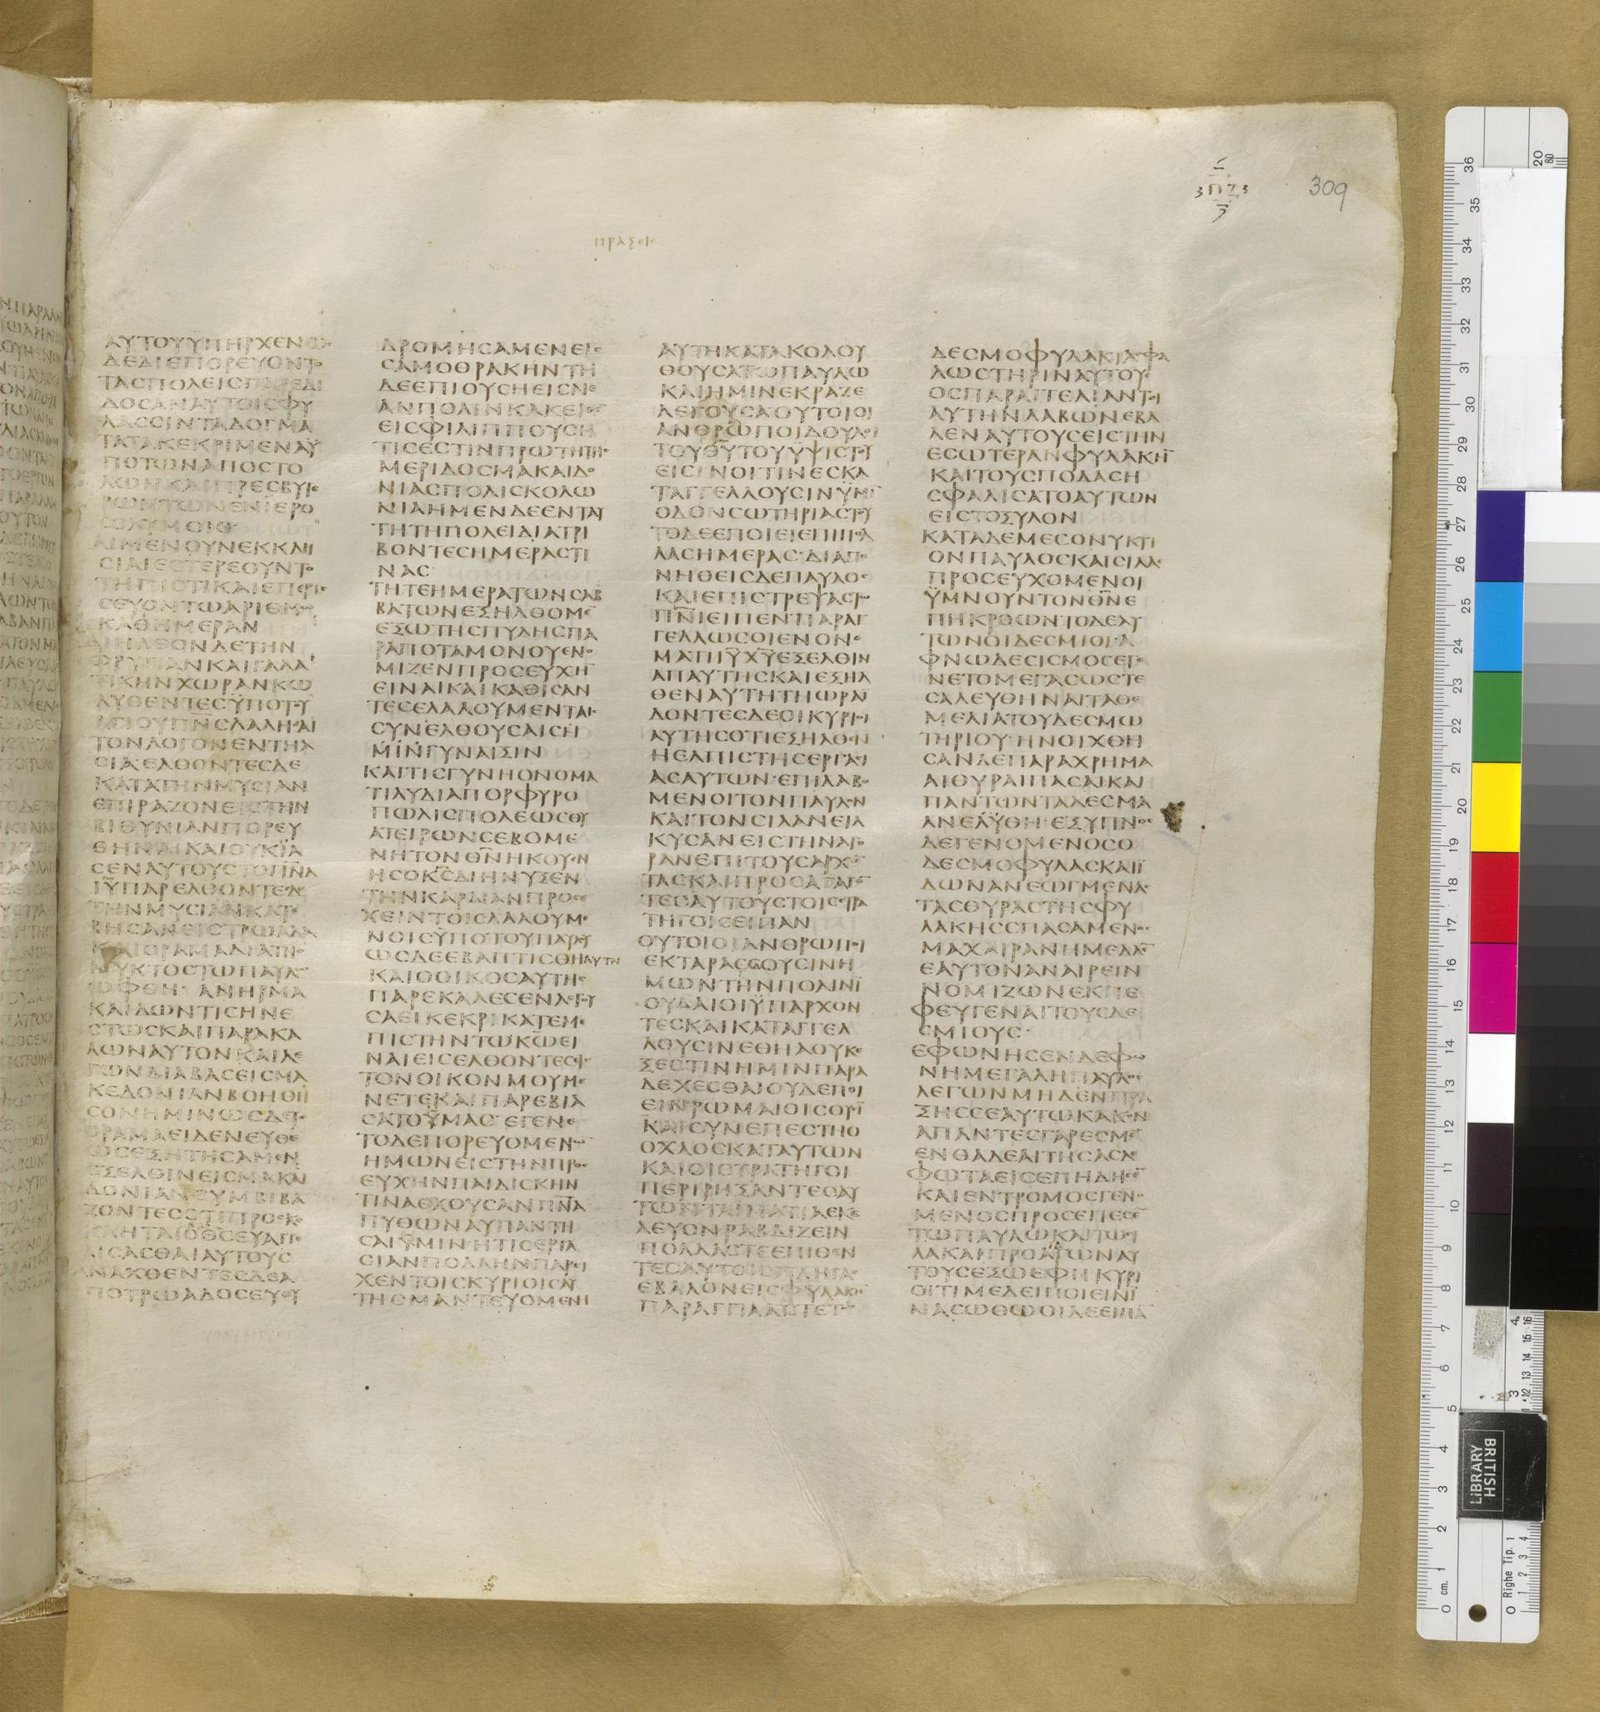 309
ΠΡΑΞΕΙϹ
ΑΥΤΟΥΫΠΗΡΧΕΝ
ΔΕΔΙΕΠΟΡΕΥΟΝΤΟ
ΤΑϹΠΟΛΕΙϹΠΑΡΕΔΙ
ΔΟϹΑΝΑΥΤΟΙϹΦΥ
ΛΑϹϹΙΝΤΑΔΟΓΜΑ
ΤΑΤΑΚΕΚΡΙΜΕΝΑΫ
ΠΟΤΩΝΑΠΟϹΤΟ
ΛΩΝΚΑΙΠΡΕϹΒΥΤΕ
ΡΩΝΤΩΝΕΝΙΕΡΟ
ϹΟΛΥΜΟΙϹ
ΑΙΜΕΝΟΥΝΕΚΚΛΗ
ϹΙΑΙΕϹΤΕΡΕΟΥΝΤΟ
ΤΗΠΙϹΤΙΚΑΙΕΠΕΡΙϹ
ϹΕΥΟΝΤΩΑΡΙΘΜΩ
ΚΑΘΗΜΕΡΑΝ
ΔΙΗΛΘΟΝΔΕΤΗΝ
ΦΡΥΓΙΑΝΚΑΙΓΑΛΑ
ΤΙΚΗΝΧΩΡΑΝΚΩ
ΛΥΘΕΝΤΕϹΫΠΟΤΟΥ
ΑΓΙΟΥΠΝ̅ϹΛΑΛΗϹΑΙ
ΤΟΝΛΟΓΟΝΕΝΤΗΑ
ϹΙΑΕΛΘΟΝΤΕϹΔΕ
ΚΑΤΑΤΗΝΜΥϹΙΑΝ
ΕΠΙΡΑΖΟΝΕΙϹΤΗΝ
ΒΙΘΥΝΙΑΝΠΟΡΕΥ
ΘΗΝΑΙΚΑΙΟΥΚΪΑ
ϹΕΝΑΥΤΟΥϹΤΟΠΝ̅Α
ΙΥ̅ΠΑΡΕΛΘΟΝΤΕϹΔΕ
ΤΗΝΜΥϹΙΑΝΚΑΤΕ
ΒΗϹΑΝΕΙϹΤΡΩΑΔΑ
ΚΑΙΟΡΑΜΑΔΙΑΤΗϹ
ΝΥΚΤΟϹΤΩΠΑΥΛΩ
ΩΦΘΗ·ΑΝΗΡΜΑ
ΚΑΙΔΩΝΤΙϹΗΝΕ
ϹΤΩϹΚΑΙΠΑΡΑΚΑ
ΛΩΝΑΥΤΟΝΚΑΙΛΕ
ΓΩΝΔΙΑΒΑϹΕΙϹΜΑ
ΚΕΔΟΝΙΑΝΒΟΗΘΗ
ϹΟΝΗΜΙΝΩϹΔΕΤΟ
ΟΡΑΜΑΕΙΔΕΝΕΥΘΕ
ΩϹΕΖΗΤΗϹΑΜΕΝ
ΕΞΕΛΘΙΝΕΙϹΜΑΚΑΙ
ΔΟΝΙΑΝϹΥΜΒΙΒΑ
ΖΟΝΤΕϹΟΤΙΠΡΟϹΚΕ
ΚΛΗΤΑΙΟΘ̅ϹΕΥΑΓΓΕ
ΛΙϹΑϹΘΑΙΑΥΤΟΥϹ
ΑΝΑΧΘΕΝΤΕϹΔΕΑ
ΠΟΤΡΩΑΔΟϹΕΥΘΥ
ΔΡΟΜΗϹΑΜΕΝΕΙϹ
ϹΑΜΟΘΡΑΚΗΝΤΗ
ΔΕΕΠΙΟΥϹΗΕΙϹΝΕ
ΑΝΠΟΛΙΝΚΑΚΕΙΘΕ̅
ΕΙϹΦΙΛΙΠΠΟΥϹΗ
ΤΙϹΕϹΤΙΝΠΡΩΤΗΤΗϹ
ΜΕΡΙΔΟϹΜΑΚΑΙΔΟ
ΝΙΑϹΠΟΛΙϹΚΟΛΩ
ΝΙΑΗΜΕΝΔΕΕΝΤΑΥ
ΤΗΤΗΠΟΛΕΙΔΙΑΤΡΙ
ΒΟΝΤΕϹΗΜΕΡΑϹΤΙ
ΝΑϹ
ΤΗΤΕΗΜΕΡΑΤΩΝϹΑΒ
ΒΑΤΩΝΕΞΗΛΘΟΜΕ̅
ΕΞΩΤΗϹΠΥΛΗϹΠΑ
ΡΑΠΟΤΑΜΟΝΟΥΕΝΟ
ΜΙΖΕΝΠΡΟϹΕΥΧΗ̅
ΕΙΝΑΙΚΑΙΚΑΘΙϹΑΝ
ΤΕϹΕΛΑΛΟΥΜΕΝΤΑΙϹ
ϹΥΝΕΛΘΟΥϹΑΙϹΗ
ΜΙΝΓΥΝΑΙΞΙΝ
ΚΑΙΤΙϹΓΥΝΗΟΝΟΜΑ
ΤΙΛΥΔΙΑΠΟΡΦΥΡΟ
ΠΩΛΙϹΠΟΛΕΩϹΘΥ
ΑΤΕΙΡΩΝϹΕΒΟΜΕ
ΝΗΤΟΝΘΝ̅ΗΚΟΥΕΝ
ΗϹΟΚϹ̅ΔΙΗΝΥΞΕΝ
ΤΗΝΚΑΡΔΙΑΝΠΡΟϹΕ
ΧΕΙΝΤΟΙϹΛΑΛΟΥΜΕ
ΝΟΙϹΫΠΟΤΟΥΠΑΥΛΟΥ
ΩϹΔΕΕΒΑΠΤΙϹΘΗΑΥΤΗ
ΚΑΙΟΟΙΚΟϹΑΥΤΗϹ
ΠΑΡΕΚΑΛΕϹΕΝΛΕΓΟΥ
ϹΑΕΙΚΕΚΡΙΚΑΤΕΜΕ
ΠΙϹΤΗΝΤΩΚΩ̅ΕΙ
ΝΑΙΕΙϹΕΛΘΟΝΤΕϹΕΙϹ
ΤΟΝΟΙΚΟΝΜΟΥΜΕ
ΝΕΤΕΚΑΙΠΑΡΕΒΙΑ
ϹΑΤΟΫΜΑϹ·ΕΓΕΝΕ
ΤΟΔΕΠΟΡΕΥΟΜΕΝΩ̅
ΗΜΩΝΕΙϹΤΗΝΠΡΟϹ
ΕΥΧΗΝΠΑΙΔΙϹΚΗΝ
ΤΙΝΑΕΧΟΥϹΑΝΠΝ̅Α
ΠΥΘΩΝΑΥΠΑΝΤΗ
ϹΑΙΫΜΙΝΗΤΙϹΕΡΓΑ
ϹΙΑΝΠΟΛΛΗΝΠΑΡΕΙ
ΧΕΝΤΟΙϹΚΥΡΙΟΙϹΑΥ
ΤΗϹΜΑΝΤΕΥΟΜΕΝΗ
ΑΥΤΗΚΑΤΑΚΟΛΟΥ
ΘΟΥϹΑΤΩΠΑΥΛΩ
ΚΑΙΗΜΙΝΕΚΡΑΖΕ
ΛΕΓΟΥϹΑΟΥΤΟΙΟΙ
ΑΝΘΡΩΠΟΙΔΟΥΛΟΙ
ΤΟΥΘΥ̅ΤΟΥΫΨΙϹΤΟΥ
ΕΙϹΙΝΟΙΤΙΝΕϹΚΑ
ΤΑΓΓΕΛΛΟΥϹΙΝΫΜΙ̅
ΟΔΟΝϹΩΤΗΡΙΑϹΤΟΥ
ΤΟΔΕΕΠΟΙΕΙΕΠΙΠΟΛ
ΛΑϹΗΜΕΡΑϹ·ΔΙΑΠΟ
ΝΗΘΕΙϹΔΕΠΑΥΛΟϹ
ΚΑΙΕΠΙϹΤΡΕΨΑϹΤΩ
ΠΝ̅ΙΕΙΠΕΝΠΑΡΑΓ
ΓΕΛΛΩϹΟΙΕΝΟΝΟ
ΜΑΤΙΙΥ̅ΧΥ̅ΕΞΕΛΘΙΝ
ΑΠΑΥΤΗϹΚΑΙΕΞΗΛ
ΘΕΝΑΥΤΗΤΗΩΡΑΪ
ΔΟΝΤΕϹΔΕΟΙΚΥΡΙΟΙ
ΑΥΤΗϹΟΤΙΕΞΗΛΘΕΝ
ΗΕΛΠΙϹΤΗϹΕΡΓΑϹΙ
ΑϹΑΥΤΩΝ·ΕΠΙΛΑΒΟ
ΜΕΝΟΙΤΟΝΠΑΥΛΟΝ
ΚΑΙΤΟΝϹΙΛΑΝΕΙΛ
ΚΥϹΑΝΕΙϹΤΗΝΑΓΟ
ΡΑΝΕΠΙΤΟΥϹΑΡΧΟ̅
ΤΑϹΚΑΙΠΡΟϹΑΓΑΓΟ̅
ΤΕϹΑΥΤΟΥϹΤΟΙϹϹΤΡΑ
ΤΗΓΟΙϹΕΙΠΑΝ
ΟΥΤΟΙΟΙΑΝΘΡΩΠΟΙ
ΕΚΤΑΡΑϹϹΟΥϹΙΝΗ
ΜΩΝΤΗΝΠΟΛΙΝΪ
ΟΥΔΑΙΟΙΫΠΑΡΧΟΝ
ΤΕϹΚΑΙΚΑΤΑΓΓΕΛ
ΛΟΥϹΙΝΕΘΗΑΟΥΚΕ
ΞΕϹΤΙΝΗΜΙΝΠΑΡΑ
ΔΕΧΕϹΘΑΙΟΥΔΕΠΟΙ
ΕΙΝΡΩΜΑΙΟΙϹΟΥϹΙ
ΚΑΙϹΥΝΕΠΕϹΤΗΟ
ΟΧΛΟϹΚΑΤΑΥΤΩΝ
ΚΑΙΟΙϹΤΡΑΤΗΓΟΙ
ΠΕΡΙΡΗΞΑΝΤΕϹΑΥ
ΤΩΝΤΑΙΜΑΤΙΑΕΚΕ
ΛΕΥΟΝΡΑΒΔΙΖΕΙΝ
ΠΟΛΛΑϹΤΕΕΠΙΘΕΝ
ΤΕϹΑΥΤΟΙϹΠΛΗΓΑϹ
ΕΒΑΛΟΝΕΙϹΦΥΛΑΚΗ̅
ΠΑΡΑΓΓΙΛΑΝΤΕϹΤΩ
ΔΕϹΜΟΦΥΛΑΚΙΑϹΦΑ
ΛΩϹΤΗΡΙΝΑΥΤΟΥϹ
ΟϹΠΑΡΑΓΓΕΛΙΑΝΤΟΙ
ΑΥΤΗΝΛΑΒΩΝΕΒΑ
ΛΕΝΑΥΤΟΥϹΕΙϹΤΗΝ
ΕϹΩΤΕΡΑΝΦΥΛΑΚΗ̅
ΚΑΙΤΟΥϹΠΟΔΑϹΗ
ϹΦΑΛΙϹΑΤΟΑΥΤΩΝ
ΕΙϹΤΟΞΥΛΟΝ
ΚΑΤΑΔΕΜΕϹΟΝΥΚΤΙ
ΟΝΠΑΥΛΟϹΚΑΙϹΙΛΑϹ
ΠΡΟϹΕΥΧΟΜΕΝΟΙ
ΫΜΝΟΥΝΤΟΝΘΝ̅Ε
ΠΗΚΡΟΩΝΤΟΔΕΑΥ
ΤΩΝΟΙΔΕϹΜΙΟΙ·Α
ΦΝΩΔΕϹΙϹΜΟϹΕΓΕ
ΝΕΤΟΜΕΓΑϹΩϹΤΕ
ϹΑΛΕΥΘΗΝΑΙΤΑΘΕ
ΜΕΛΙΑΤΟΥΔΕϹΜΩ
ΤΗΡΙΟΥ·ΗΝΟΙΧΘΗ
ϹΑΝΔΕΠΑΡΑΧΡΗΜΑ
ΑΙΘΥΡΑΙΠΑϹΑΙΚΑΙ
ΠΑΝΤΩΝΤΑΔΕϹΜΑ
ΑΝΕΛΥΘΗ·ΕΞΥΠΝΟϹ
ΔΕΓΕΝΟΜΕΝΟϹΟ
ΔΕϹΜΟΦΥΛΑΞΚΑΙΪ
ΔΩΝΑΝΕΩΓΜΕΝΑϹ
ΤΑϹΘΥΡΑϹΤΗϹΦΥ
ΛΑΚΗϹϹΠΑϹΑΜΕΝΟϹ
ΜΑΧΑΙΡΑΝΗΜΕΛΛΕ̅
ΕΑΥΤΟΝΑΝΑΙΡΕΙΝ
ΝΟΜΙΖΩΝΕΚΠΕ
ΦΕΥΓΕΝΑΙΤΟΥϹΔΕ
ϹΜΙΟΥϹ·
ΕΦΩΝΗϹΕΝΔΕΦΩ
ΝΗΜΕΓΑΛΗΠΑΥΛΟϹ
ΛΕΓΩΝΜΗΔΕΝΠΡΑ
ΞΗϹϹΕΑΥΤΩΚΑΚΟΝ
ΑΠΑΝΤΕϹΓΑΡΕϹΜΕ̅
ΕΝΘΑΔΕΑΙΤΗϹΑϹΔΕ
ΦΩΤΑΕΙϹΕΠΗΔΗϹΕ̅
ΚΑΙΕΝΤΡΟΜΟϹΓΕΝΟ
ΜΕΝΟϹΠΡΟϹΕΠΕϹΕ̅
ΤΩΠΑΥΛΩΚΑΙΤΩϹΙ
ΛΑΚΑΙΠΡΟΑΓΩΝΑΥ
ΤΟΥϹΕΞΩΕΦΗΚΥΡΙ
ΟΙΤΙΜΕΔΕΙΠΟΙΕΙΝΪ
ΝΑϹΩΘΩΟΙΔΕΕΙΠΑ̅